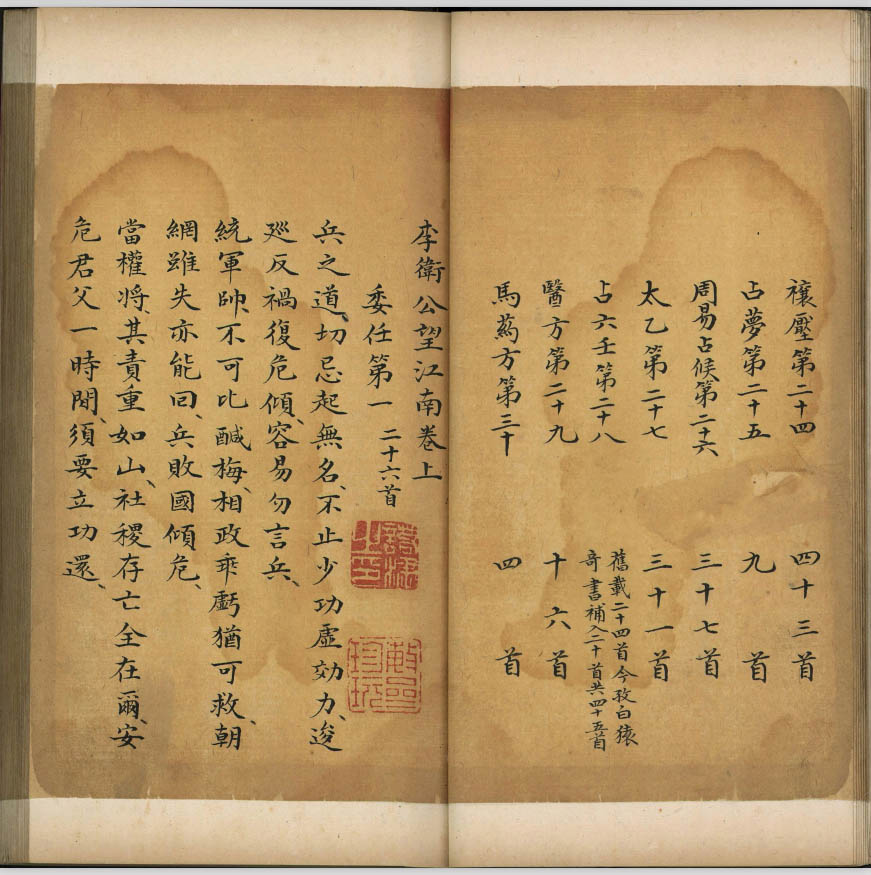 禳壓第二十四 四十三首
占夢第二十五 九首
周易占候第二十六 三十七首
太乙第二十七 三十一首
占六壬第二十八 舊載二十四首今攷白猿
奇書補入二十一首共四十五首
醫方第二十九 十六首
馬葯方第三十 四首
李衛公望江南卷上
委任第一 二十六首
兵之道、切忌起無名、不止少功虛効力、逡
廵反禍復危傾、容易勿言兵、
統軍帥、不可比醎梅、相政乖虧猶可救、朝
網雖失亦能囘、兵敗國傾危、
當權將、其責重如山、社稷存亡全在爾、安
危君父一時閒、須要立功還、